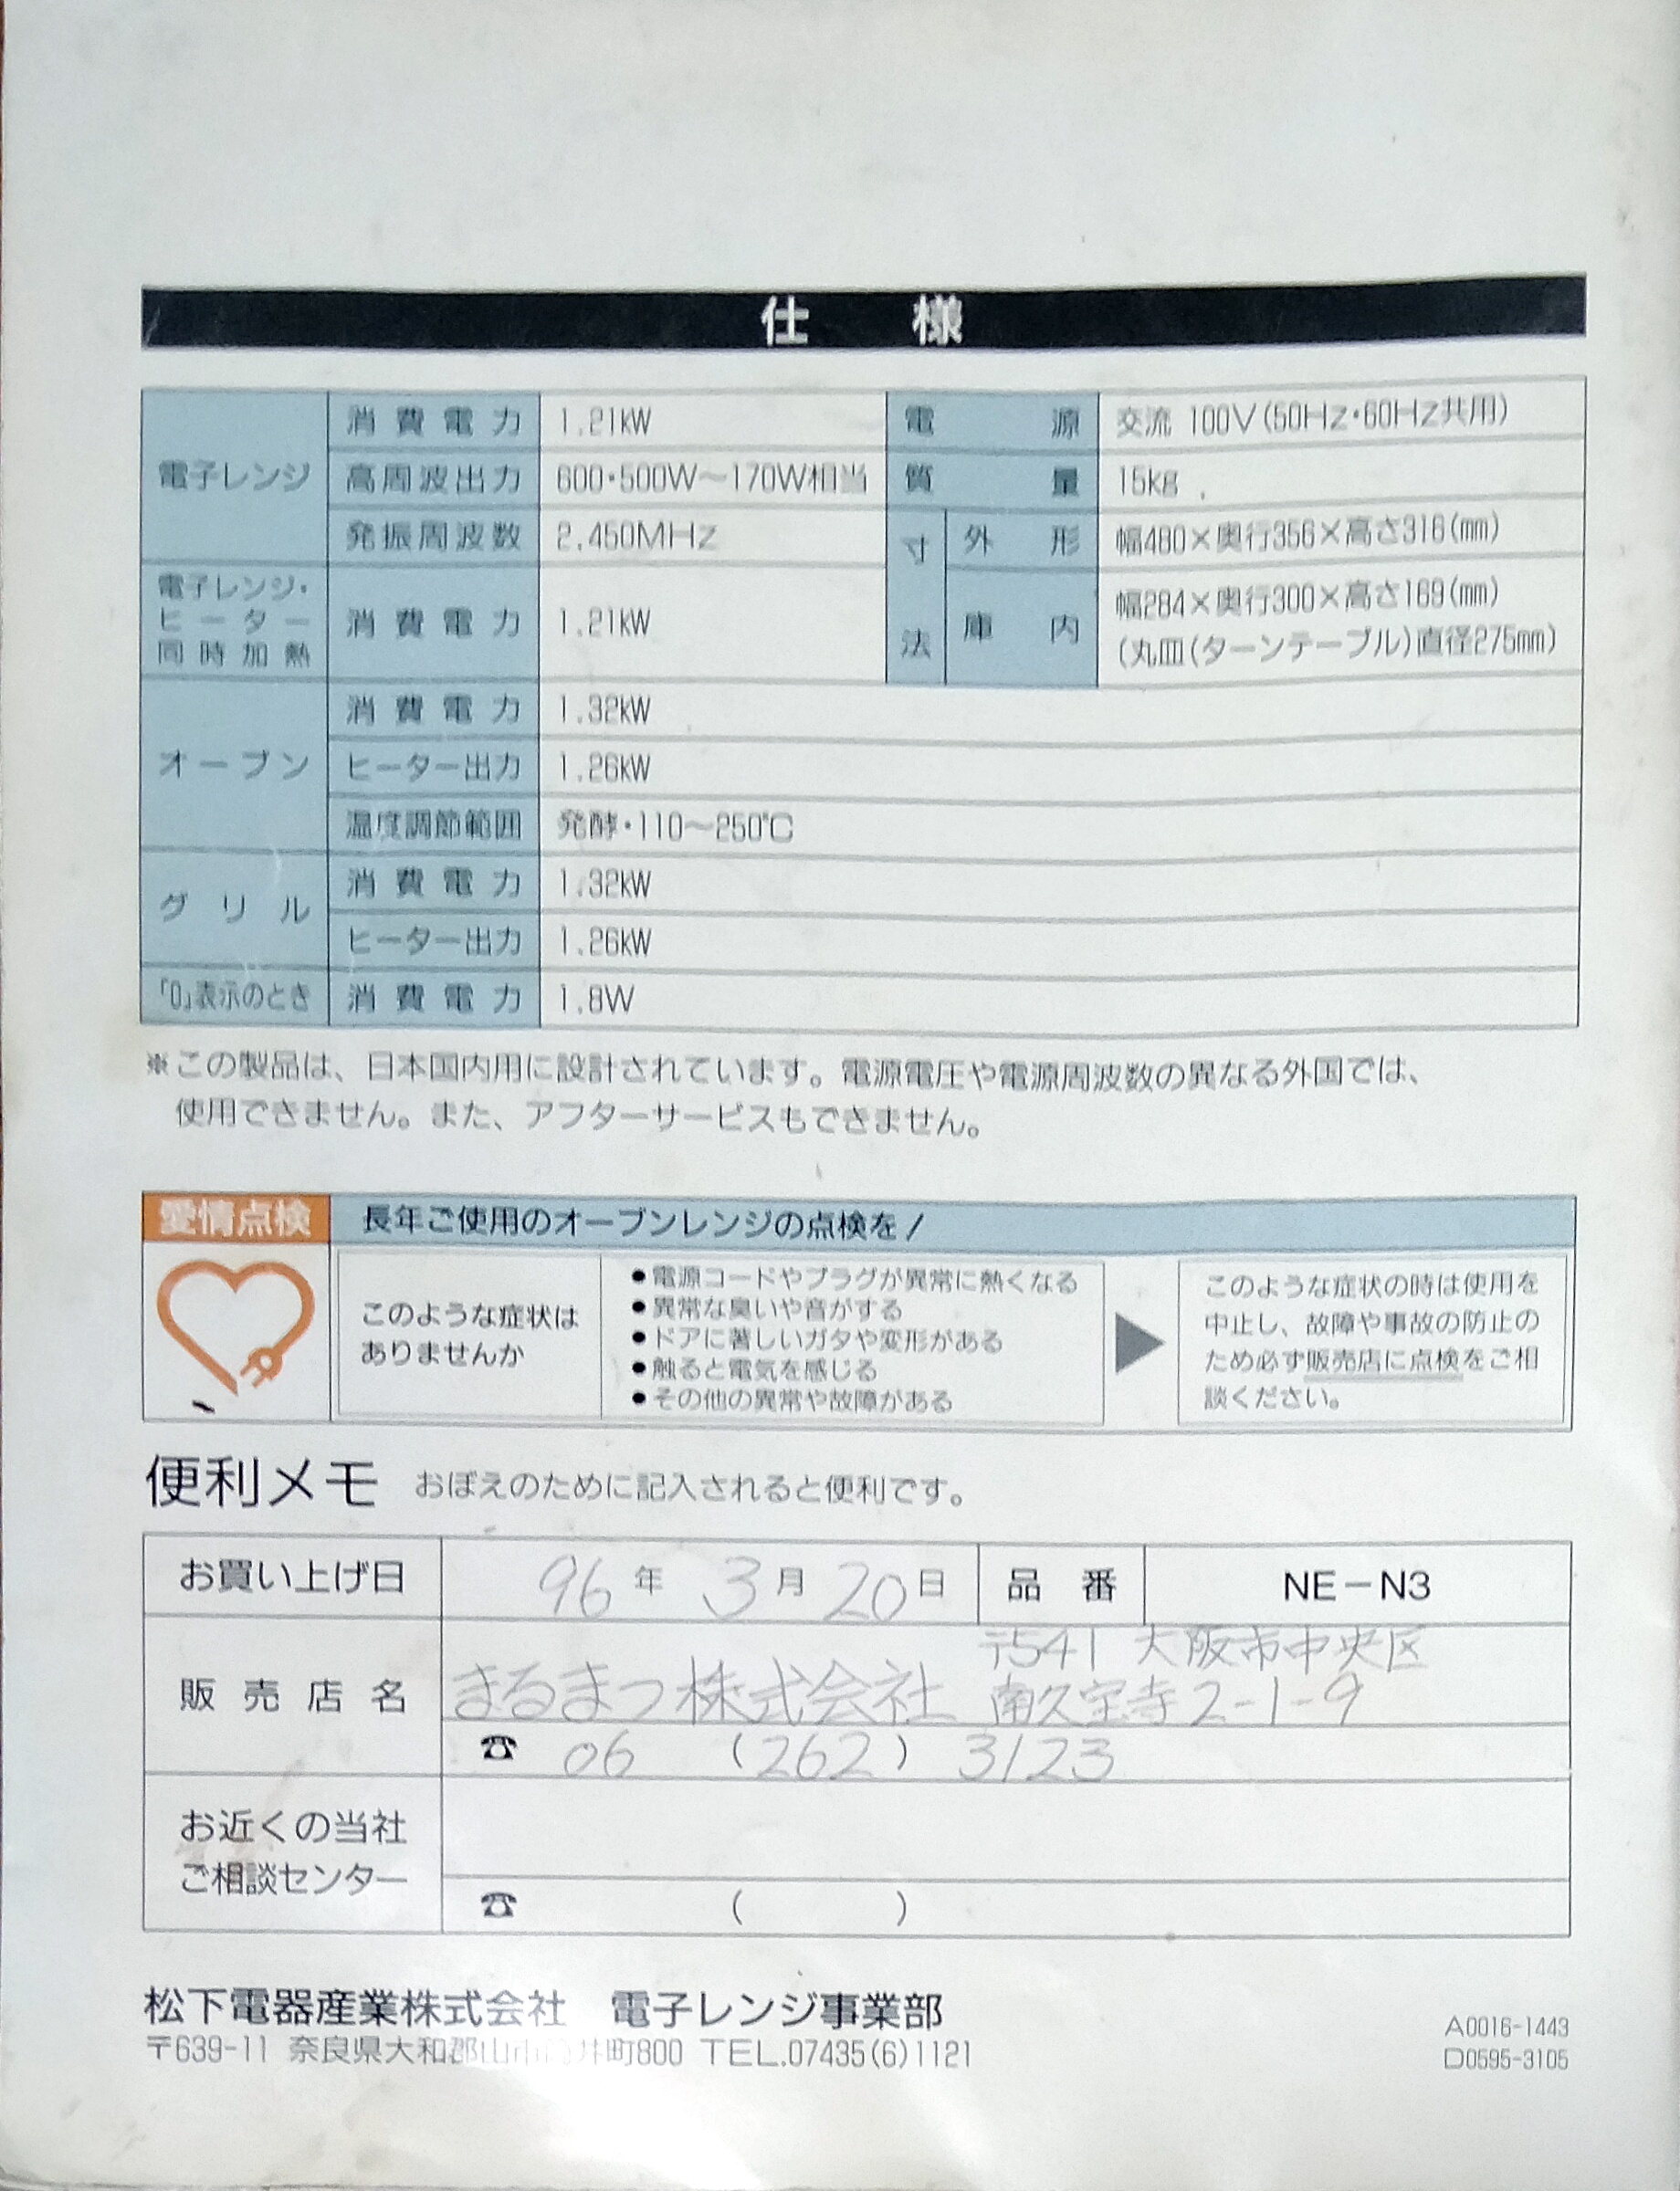 仕様
電子レンジ 消費電力 1.21kW 電源 交流 100V(50Hz・60Hz共用)
高周波出力 600・500W〜170W相当 質量 15kg
発振周波数 2,450MHz 寸法 外形 幅480×奥行356×高さ316(mm)
電子レンジ・ヒーター同時加熱 消費電力 1.21kW 庫内 幅284×奥行300×高さ169(mm)
(丸皿(ターンテーブル)直径275mm)
オーブン 消費電力 1.32kW
ヒーター出力 1.26kW
温度調節範囲 発酵・110〜250℃
グリル 消費電力 1.32kW
ヒーター出力 1.26kW
「0」表示のとき 消費電力 1.8W
※この製品は、日本国内用に設計されています。電源電圧や電源周波数の異なる外国では、
使用できません。また、アフターサービスもできません。
愛情点検 長年ご使用のオーブンレンジの点検を!
このような症状は
ありませんか
●電源コードやプラグが異常に熱くなる
●異常な臭いや音がする
●ドアに著しいガタや変形がある
●触ると電気を感じる
●その他の異常や故障がある
このような症状の時は使用を
中止し、故障や事故の防止の
ため必ず販売店に点検をご相
談ください。
便利メモ おぼえのために記入されると便利です。
お買い上げ日 96年 3月 20日 品番 NE-N3
販売店名 まるまつ株式会社 〒541 大阪市中央区
南久宝寺2-1-9
☎ 06 (262) 3123
お近くの当社
ご相談センター
☎ ( )
松下電器産業株式会社 電子レンジ事業部
〒639-11 奈良県大和郡山市筒井町800 TEL.07435(6)1121
A0016-1443
D0595-3105